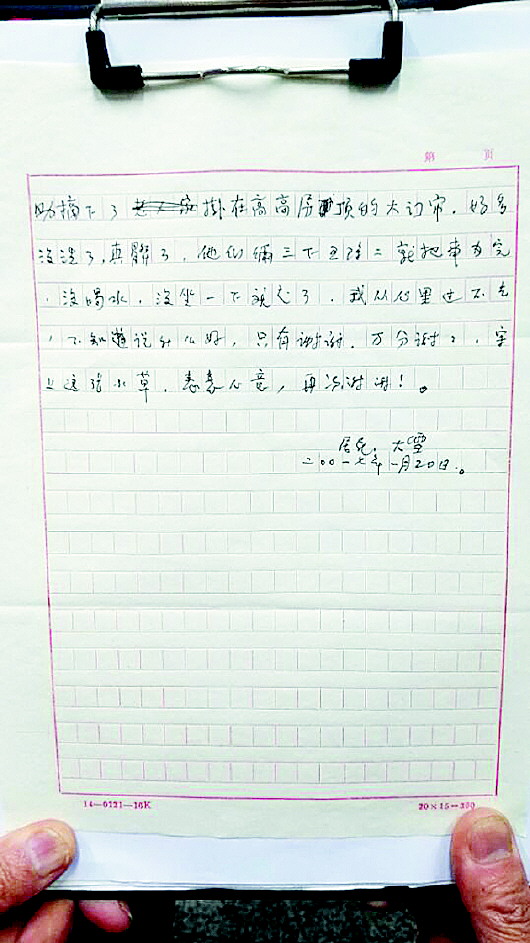 第 页
助摘下了 掛在高高房顶的大门帘．好多
没洗了，真髒了，他们俩三下五除二就把事办完
，没喝水，没坐一下就走了．我从心里过不去
，不知道说什么好，只有谢谢．万分谢々，写
上这张小草．表表心意，再次谢谢！。
居民．大雪
二〇〇一七年一月20日．。
14—0121—16K 20×15=300